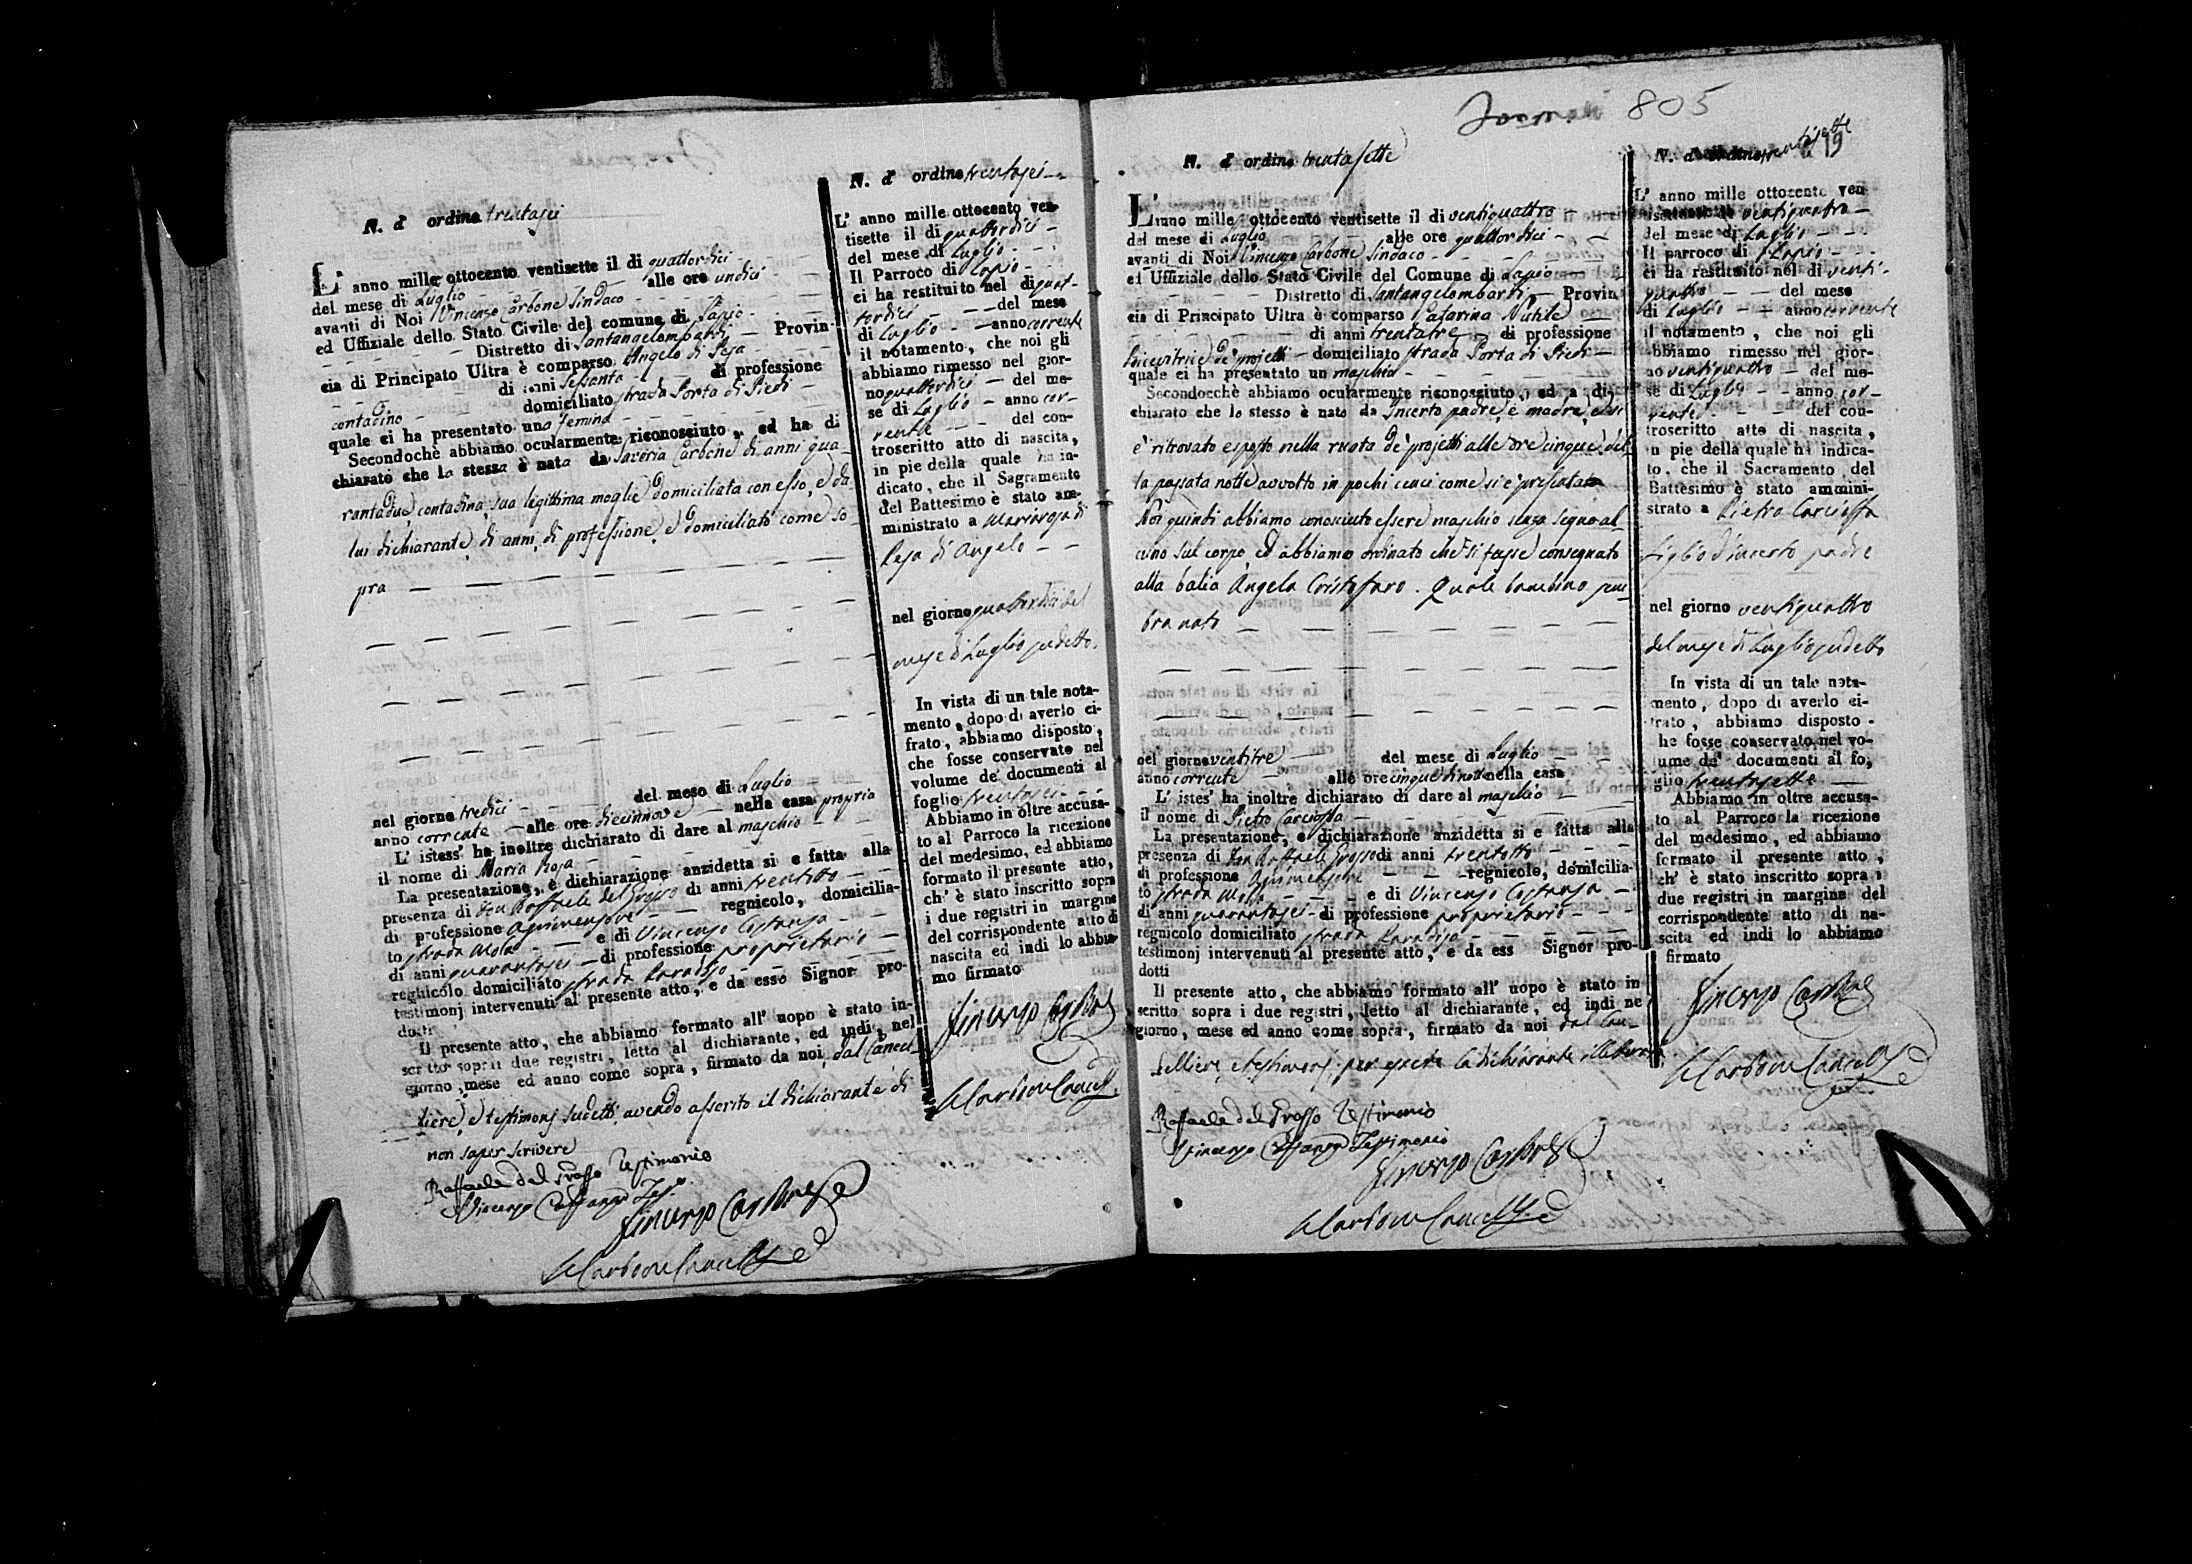 N. d' ordine trentasei
L' anno mille ottocento ventisette il di quattordici
del mese di Luglio alle ore undici
avanti di Noi Vincenzo Carbone Sindaco
ed Uffiziale dello Stato Civile del comune di Lapio
Distretto di Santangelombardi Provin-
cia di Principato Ultra è comparso Angelo di Peja
di anni sessanta di professione
contadino domiciliato strada Porta di Piedi
quale ci ha presentato una femina
Secondochè abbiamo ocularmente riconosciuto, ed ha di
chiarato che la stessa è nata da Saveria Carbone di anni qua-
rantadue contadina sua legittima moglie domiciliata con esso, e da
lui dichiarante di anni, di professione, e domiciliato come so
pra
nel giorno tredici del mese di Luglio
anno corrente alle ore diecinnove nella casa propria
L' istess' ha inoltre dichiarato di dare al maschio
il nome di Maria Rosa
La presentazione, e dichiarazione anzidetta si e fatta alla
presenza di Don Raffaele del Grosso di anni trentotto
di professione Agrimensore regnicolo, domicilia-
to strada Mola e di Vincenzo Costanza
di anni quarantasei di professione proprietario
regnicolo domiciliato strada Paradiso
testimonj intervenuti al presente atto, e da esso Signor pro-
dotti
Il presente atto, che abbiamo formato all' uopo è stato in-
scritto sopra i due registri, letto al dichiarante, ed indi, nel
giorno, mese ed anno come sopra, firmato da noi, dal Cancel-
liere, e testimonj sudetti avendo asserito il dichiarante di
non saper scrivere
Raffaele del Grosso Testimonio
Vincenzo Costanza Tes.o
Vincenzo Carbone
Carbone Cancell.e
N. d' ordine trentasei
L' anno mille ottocento ven-
tisette il di quattordici
del mese di Luglio
Il Parroco di Lapio
ci ha restituito nel di quat-
tordici del mese
di Luglio anno corrente
il notamento, che noi gli
abbiamo rimesso nel gior-
no quattordici del me-
se di Luglio anno cor-
rente del con-
troscritto atto di nascita,
in pie della quale ha in-
dicato, che il Sagramento
del Battesimo è stato am-
ministrato a Mariarosa di
Peja di Angelo
nel giorno quattordici del
mese di Luglio sudetto.
In vista di un tale nota-
mento, dopo di averlo ci-
frato, abbiamo disposto,
che fosse conservato nel
volume de' documenti al
foglio trentasei
Abbiamo in oltre accusa-
to al Parroco la ricezione
del medesimo, ed abbiamo
formato il presente atto,
ch' è stato inscritto sopra
i due registri in margine
del corrispondente atto di
nascita ed indi lo abbia-
mo firmato
Vincenzo Carbone
Carbone Cancell.
805
19
N. d' ordine trentasette
L' anno mille ottocento ventisette il di ventiquattro
del mese di Luglio alle ore quattordici
avanti di Noi Vincenzo Carbone Sindaco
ed Uffiziale dello Stato Civile del Comune di Lapio
Distretto di Santangelombardi Provin
cia di Principato Ultra è comparso Catarina Nutile
di anni trentatre di professione
Ricevitrice de' projetti domiciliato strada Porta di Piedi
quale ci ha presentato un maschio
Secondocchè abbiamo ocularmente riconosciuto, ed a di-
chiarato che lo stesso è nato da Incerto padre, e madre, e si
è ritrovato esposto nella ruota de' projetti alle ore cinque del-
la passata notte avvolto in pochi cenci come si è presentato
Noi quindi abbiamo conosciuto essere maschio senza segno al-
cuno sul corpo ed abbiamo ordinato che si fusse consegnato
alla balia Angela Cristofaro. Quale bambino sem-
bra nato
nel giorno ventitre del mese di Luglio
anno corrente alle ore cinque di notte nella casa
L' istes' ha inoltre dichiarato di dare al maschio
il nome di Pietro Carcioffa
La presentazione, e dichiarazione anzidetta si e fatta alla
presenza di Don Raffaele Grosso di anni trentotto
di professione Agrimensore regnicolo, domicilia-
to strada Mola e di Vincenzo Costanza
di anni quarantasei di professione proprietario
regnicolo domiciliato strada Paradiso
testimonj intervenuti al presente atto, e da ess Signor pro-
dotti
Il presente atto, che abbiamo formato all' uopo è stato in
scritto sopra i due registri, letto al dichiarante, ed indi ne
giorno, mese ed anno come sopra, firmato da noi dal Can-
celliere, e testimonj per essere la dichiarante illetterata
Raffaele del Grosso Testimonio
Vincenzo Costanza Testimonio
Vincenzo Carbone
Carbone Cancell.e
N. d' ordine trentasette
L' anno mille ottocento ven
tisette il di ventiquattro
del mese di Luglio
Il parroco di Lapio
ci ha restituito nel di venti-
quattro del mese
di Luglio anno corrente
il notamento, che noi gli
abbiamo rimesso nel gior-
no ventiquattro del me-
se di Luglio anno cor-
rente del con-
troscritto atto di nascita,
in pie della quale ha indica-
to, che il Sacramento del
Battesimo è stato ammini-
strato a Pietro Carcioffa
Figlio d'incerto padre
nel giorno ventiquattro
del mese di Luglio sudetto
In vista di un tale nota-
mento, dopo di averlo ci-
frato, abbiamo disposto
che fosse conservato nel vo-
lume da' documenti al fo,
glio trentasette
Abbiamo in oltre accusa-
to al Parroco la ricezione
del medesimo, ed abbiamo
formato il presente atto,
ch' è stato inscritto sopra i
due registri in margine del
corrispondente atto di na-
scita ed indi lo abbiamo
firmato
Vincenzo Carbone
Carbone Cancell.e